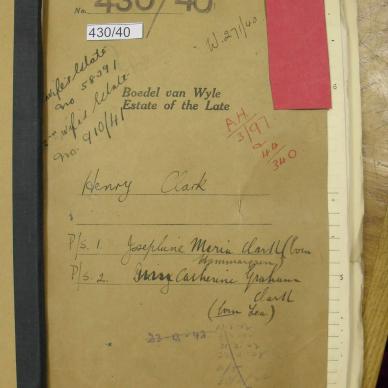 No. 430/40
430/40
W. 271/40
wife's Estate
no 58391
2nd wife's Estate
no. 910/41
Boedel van Wyle
Estate of the Late
AH
3/97
340
Henry Clark
P/s. 1. Josephine Maria Clark (born
P/s. 2. Catherine Graham
Clark
(born Lea)